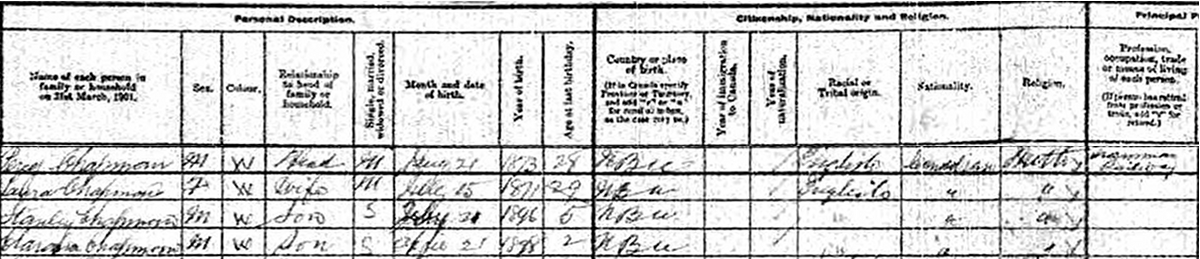 Personal Description. Citizenship, Nationality and Religion. Principal
Name of each person in family or household on 31st March, 1901. Sex. Colour. Relationship to head of family or household. Single, married, widowed or divorced. Month and date of birth. Year of birth. Age at last birthday. Country or place of birth. (If in Canada specify Province or Territory, and add "r" or "u" for rural or urban, as the case may be.) Year of immigration to Canada. Year of naturalization. Racial or Tribal origin. Nationality. Religion. Profession, occupation, trade or means of living of each person. (If person has retired from profession or trade, add "r" for retired.)
Chapman M W Head M 1873 28 N B u English Canadian Railway
Laura Chapman F W Wife M 15 1871 29 N B u English "
Stanley Chapman M W Son S July 1896 N B u " "
Chapman M W Son S April 21 1898 2 N B u " "